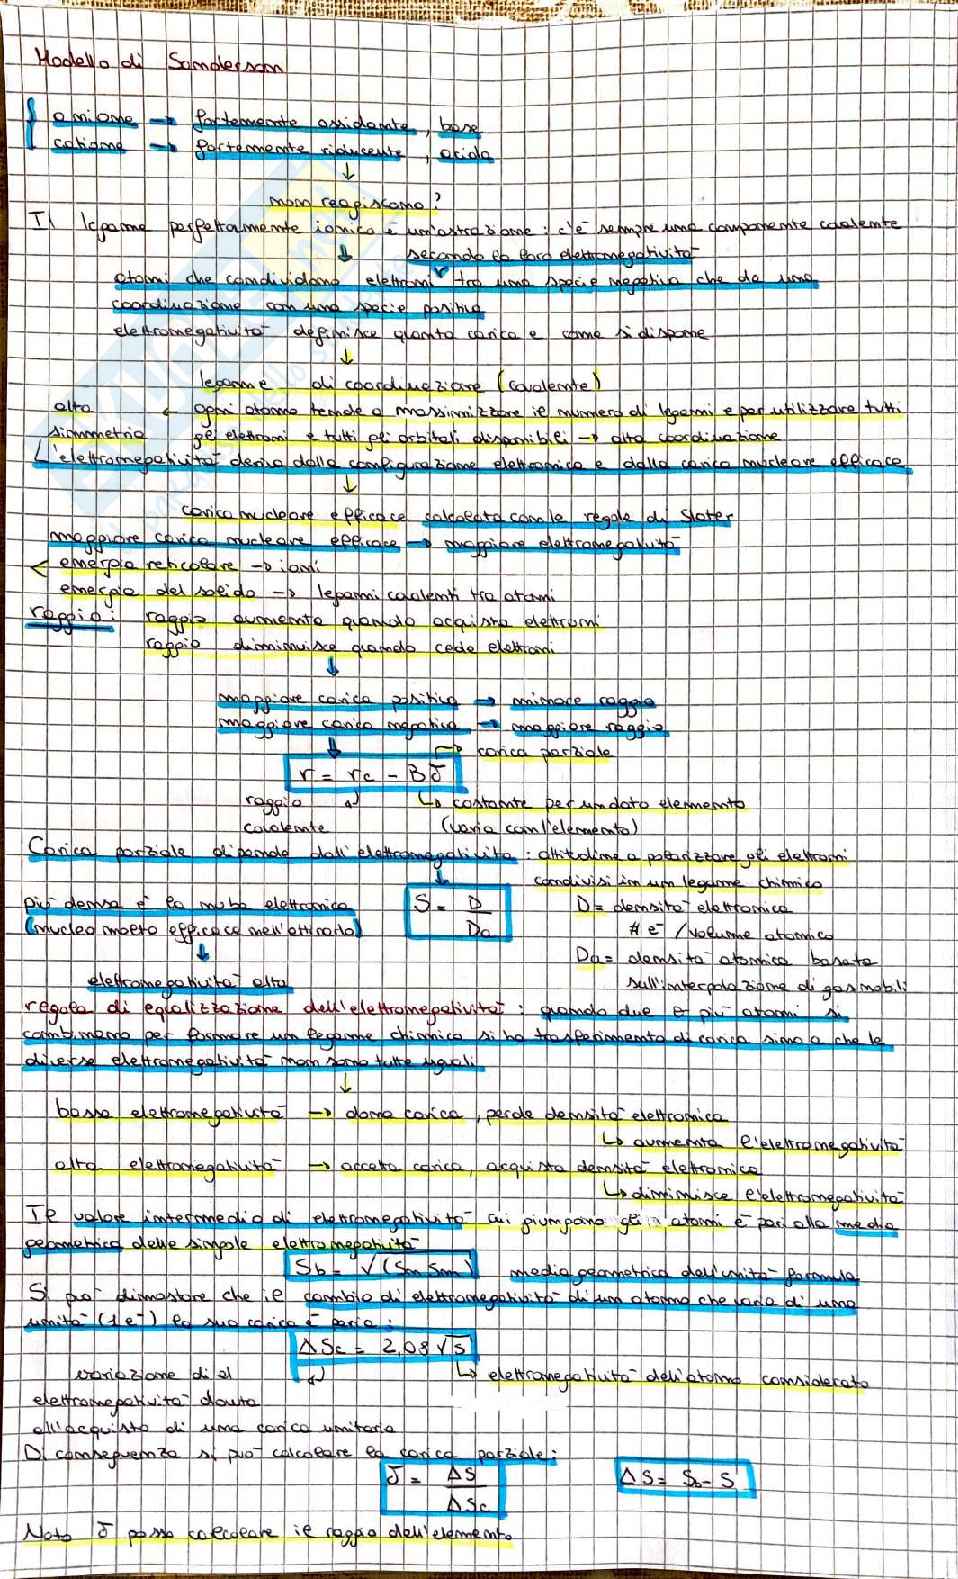 Modello di Sanderson
anione → fortemente ossidante, base
catione → fortemente riducente, acido
↓
non reagiscono?
Il legame perfettamente ionico è un'astrazione: c'è sempre una componente covalente
↓ secondo la loro elettronegatività
atomi che condividono elettroni tra una specie negativa che da una
coordinazione con una specie positiva
elettronegatività definisce quanta carica e come si dispone
↓
legame di coordinazione (covalente)
alta ← ogni atomo tende a massimizzare il numero di legami e per utilizzare tutti
simmetria gli elettroni e tutti gli orbitali disponibili → alta coordinazione
L'elettronegatività deriva dalla configurazione elettronica e dalla carica nucleare efficace
↓
carica nucleare efficace calcolata con le regole di Slater
maggiore carica nucleare efficace → maggiore elettronegatività
< energia reticolare → ioni
energia del solido → legami covalenti tra atomi
raggio: raggio aumenta quando acquista elettroni
raggio diminuisce quando cede elettroni
↓
maggiore carica positiva → minore raggio
maggiore carica negativa → maggiore raggio
↓ → carica parziale
r = rc - Bδ
raggio ↲ ↳ costante per un dato elemento
covalente (varia con l'elemento)
Carica parziale dipende dall'elettronegatività: attitudine a polarizzare gli elettroni
↓ condivisi in un legame chimico
più densa è la nube elettronica S = D/Da D = densità elettronica
(nucleo molto efficace nell'attirarla) # e⁻/volume atomico
↓ Da = densità atomica basata
elettronegatività alta sull'interpolazione di gas nobili
regola di equalizzazione dell'elettronegatività: quando due o più atomi si
combinano per formare un legame chimico si ha trasferimento di carica sino a che le
diverse elettronegatività non sono tutte uguali
↓
bassa elettronegatività → dona carica, perde densità elettronica
↳ aumenta l'elettronegatività
alta elettronegatività → accetta carica, acquista densità elettronica
↳ diminuisce l'elettronegatività
Il valore intermedio di elettronegatività cui giungono gli atomi è pari alla media
geometrica delle singole elettronegatività
Sb = √(Sm Sm) media geometrica dell'unità formula
Si può dimostrare che il cambio di elettronegatività di un atomo che varia di una
unità (1e⁻) la sua carica è pari a:
ΔSc = 2,08√S
variazione di el ↲ ↳ elettronegatività dell'atomo considerato
elettronegatività dovuta
all'acquisto di una carica unitaria
Di conseguenza si può calcolare la carica parziale:
δ = ΔS/ΔSc ΔS = Sb - S
Noto δ posso calcolare il raggio dell'elemento